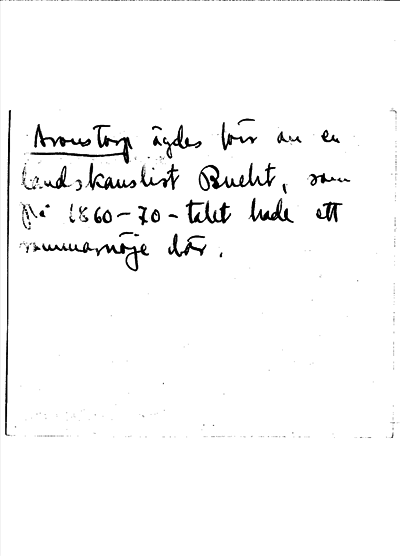 Aronstorp ägdes förr av en
landskanslist Bucht, som
på 1860-70-talet hade ett
sommarnöje där.